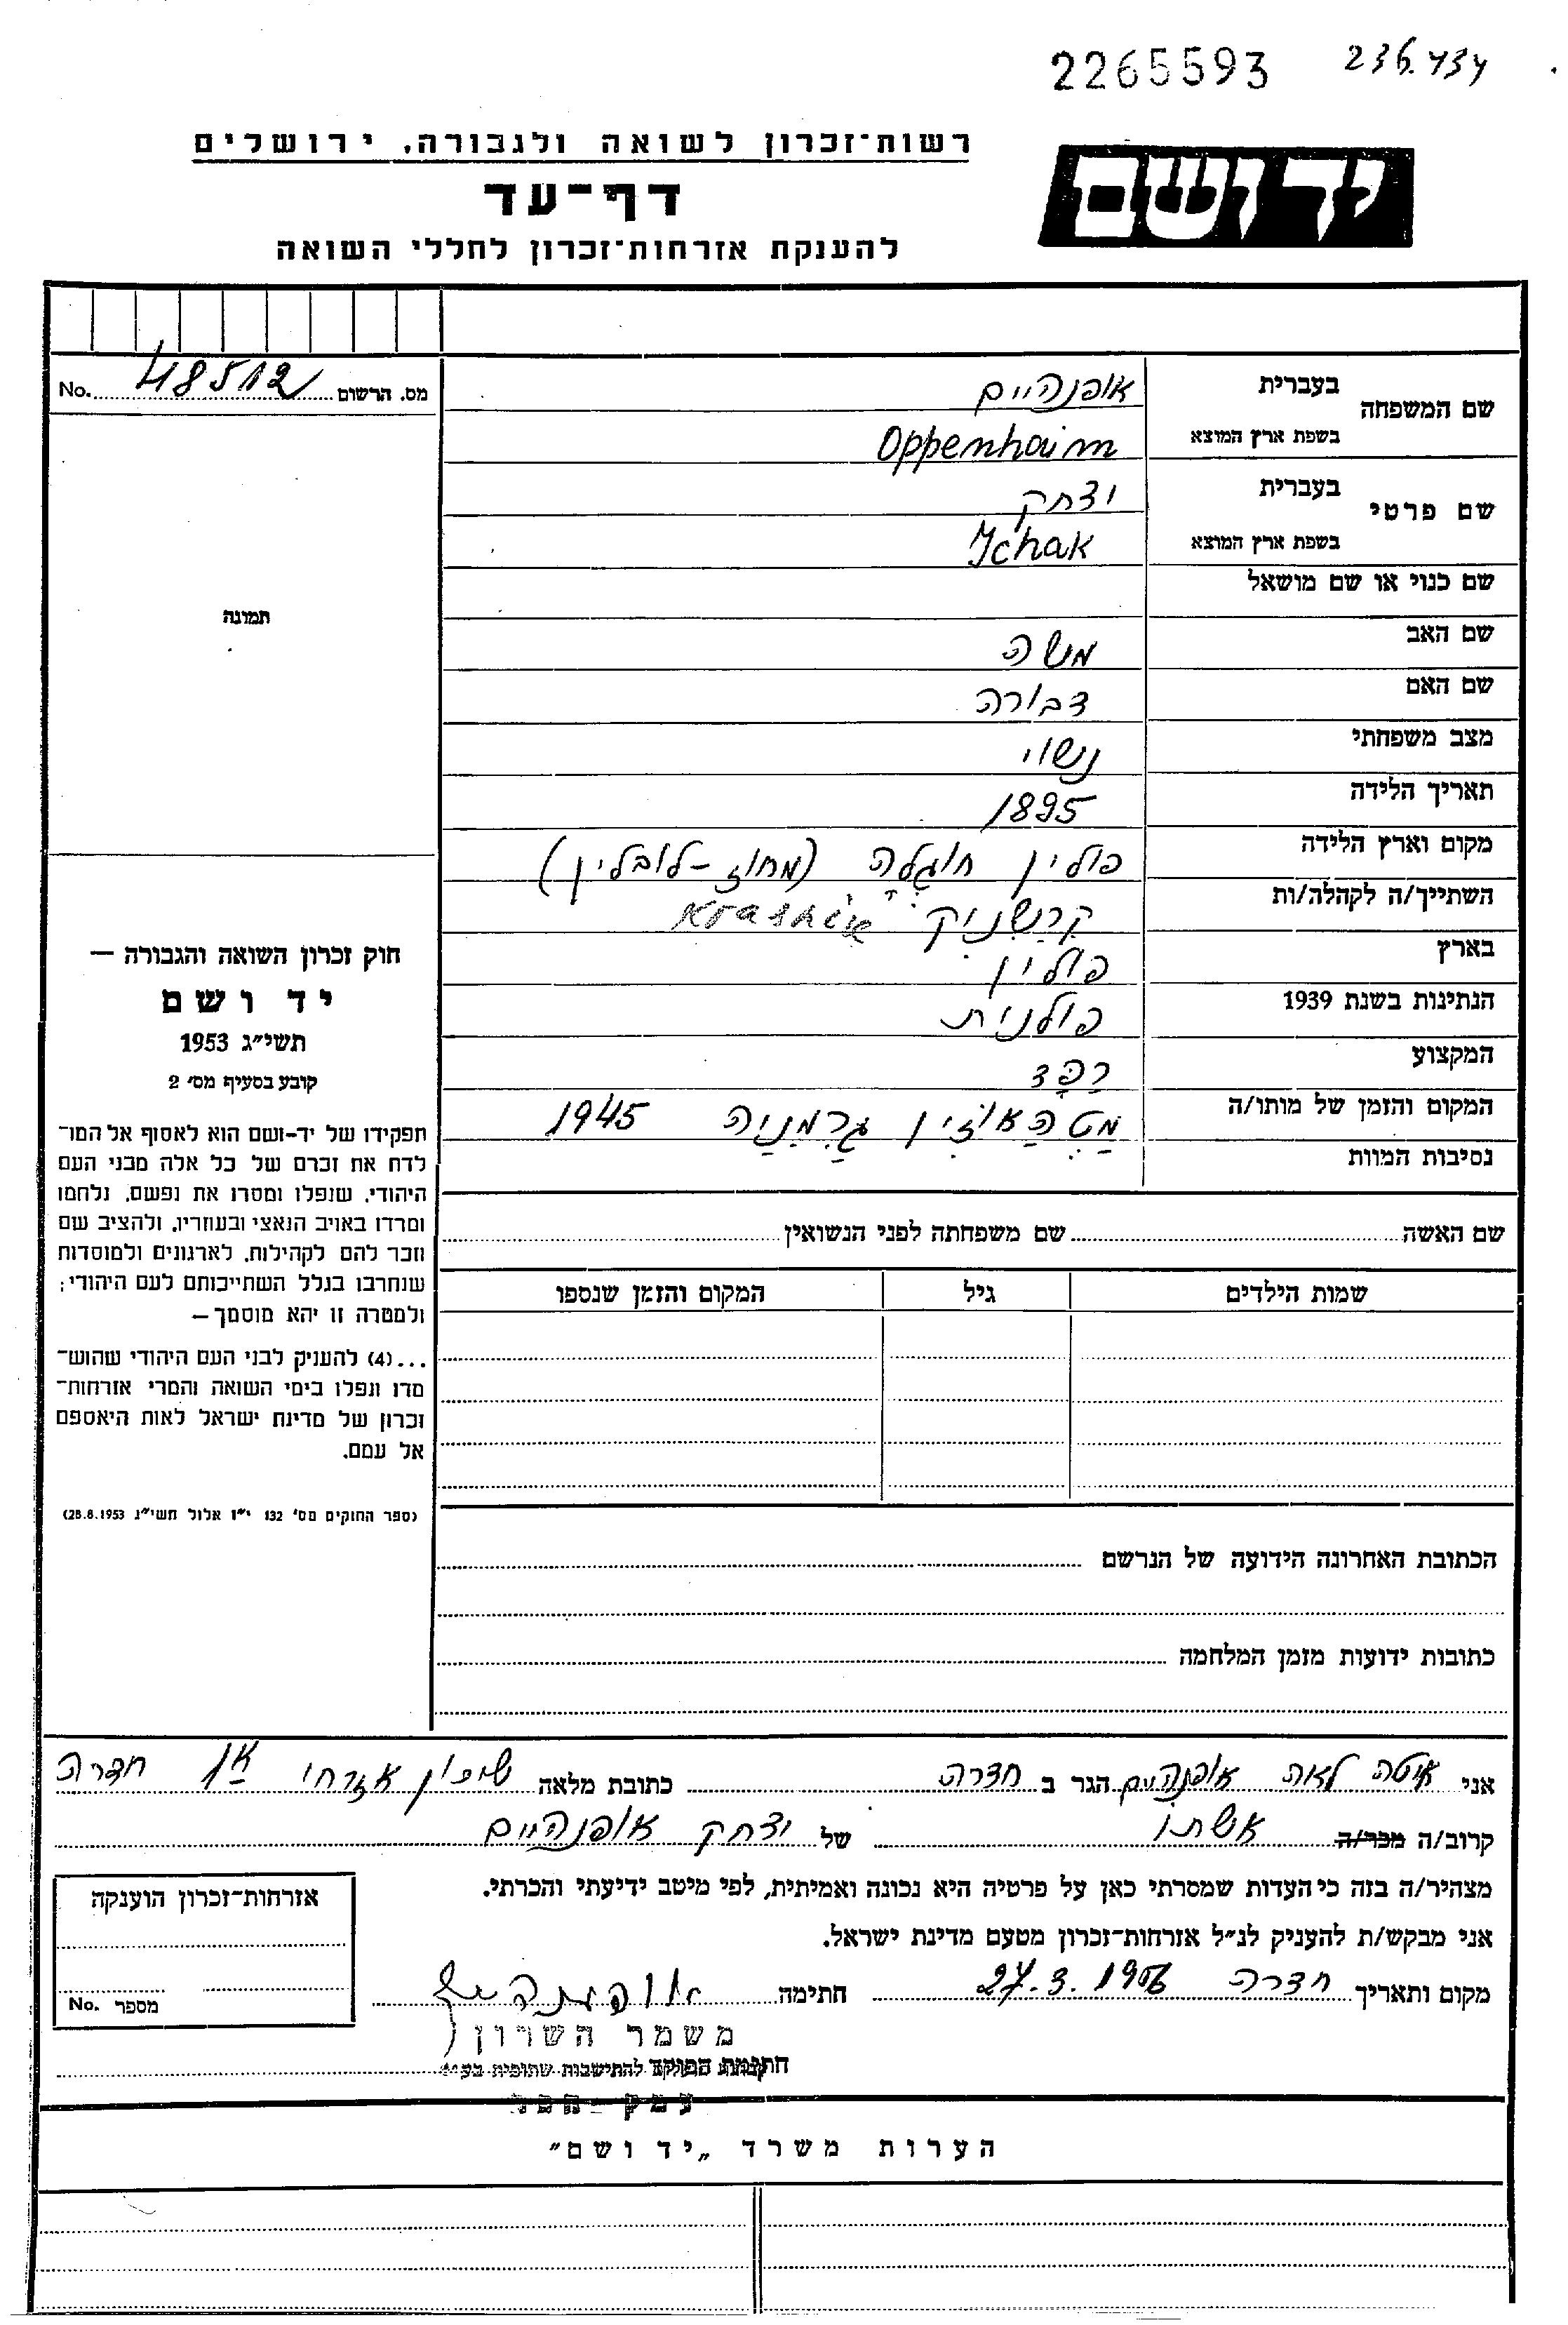 2265593 236.434
רשות־זכרון לשואה ולגבורה, ירושלים
יד ושם
דף־עד
להענקת אזרחות־זכרון לחללי השואה
מס. הרשום 48512 No.
תמונה
שם המשפחה
בעברית אופנהיים
בשפת ארץ המוצא Oppenhaim
שם פרטי
בעברית יצחק
בשפת ארץ המוצא Ichak
שם כנוי או שם מושאל
שם האב משה
שם האם דבורה
מצב משפחתי נשוי
תאריך הלידה 1895
מקום וארץ הלידה פולין חוגלה (מחוז-לובלין)
השתייך/ה לקהלה/ות קרשניק Krashnik
בארץ פולין
הנתינות בשנת 1939 פולנית
המקצוע רַפָּד
המקום והזמן של מותו/ה מטהאוזין גרמניה 1945
נסיבות המוות
חוק זכרון השואה והגבורה —
יד ושם
תשי״ג 1953
קובע בסעיף מס׳ 2
תפקידו של יד-ושם הוא לאסוף אל המו־
לדת את זכרם של כל אלה מבני העם
היהודי, שנפלו ומסרו את נפשם, נלחמו
ומרדו באויב הנאצי ובעוזריו, ולהציב שם
וזכר להם לקהילות, לארגונים ולמוסדות
שנחרבו בגלל השתייכותם לעם היהודי;
ולמטרה זו יהא מוסמך—
...(4) להעניק לבני העם היהודי שהוש־
מדו ונפלו בימי השואה והמרי אזרחות־
זכרון של מדינת ישראל לאות היאספם
אל עמם.
(ספר החוקים מס׳ 132 י״ז אלול תשי״ג 28.8.1953)
שם האשה שם משפחתה לפני הנשואין
שמות הילדים גיל המקום והזמן שנספו
הכתובת האחרונה הידועה של הנרשם
כתובות ידועות מזמן המלחמה
אני איטה לאה אופנהיים הגר ב חדרה כתובת מלאה שיכון אזרחי חדרה
קרוב/ה מכר/ה אשתו של יצחק אופנהיים
מצהיר/ה בזה כי העדות שמסרתי כאן על פרטיה היא נכונה ואמיתית, לפי מיטב ידיעתי והכרתי.
אני מבקש/ת להעניק לנ״ל אזרחות־זכרון מטעם מדינת ישראל.
מקום ותאריך חדרה 27.3.1956 חתימה אופנהיים
אזרחות־זכרון הוענקה
מספר No.
משמר השרון
חתימת הפוקד
להתישבות שתופית בע״מ
עמק חפר
הערות משרד „יד ושם״